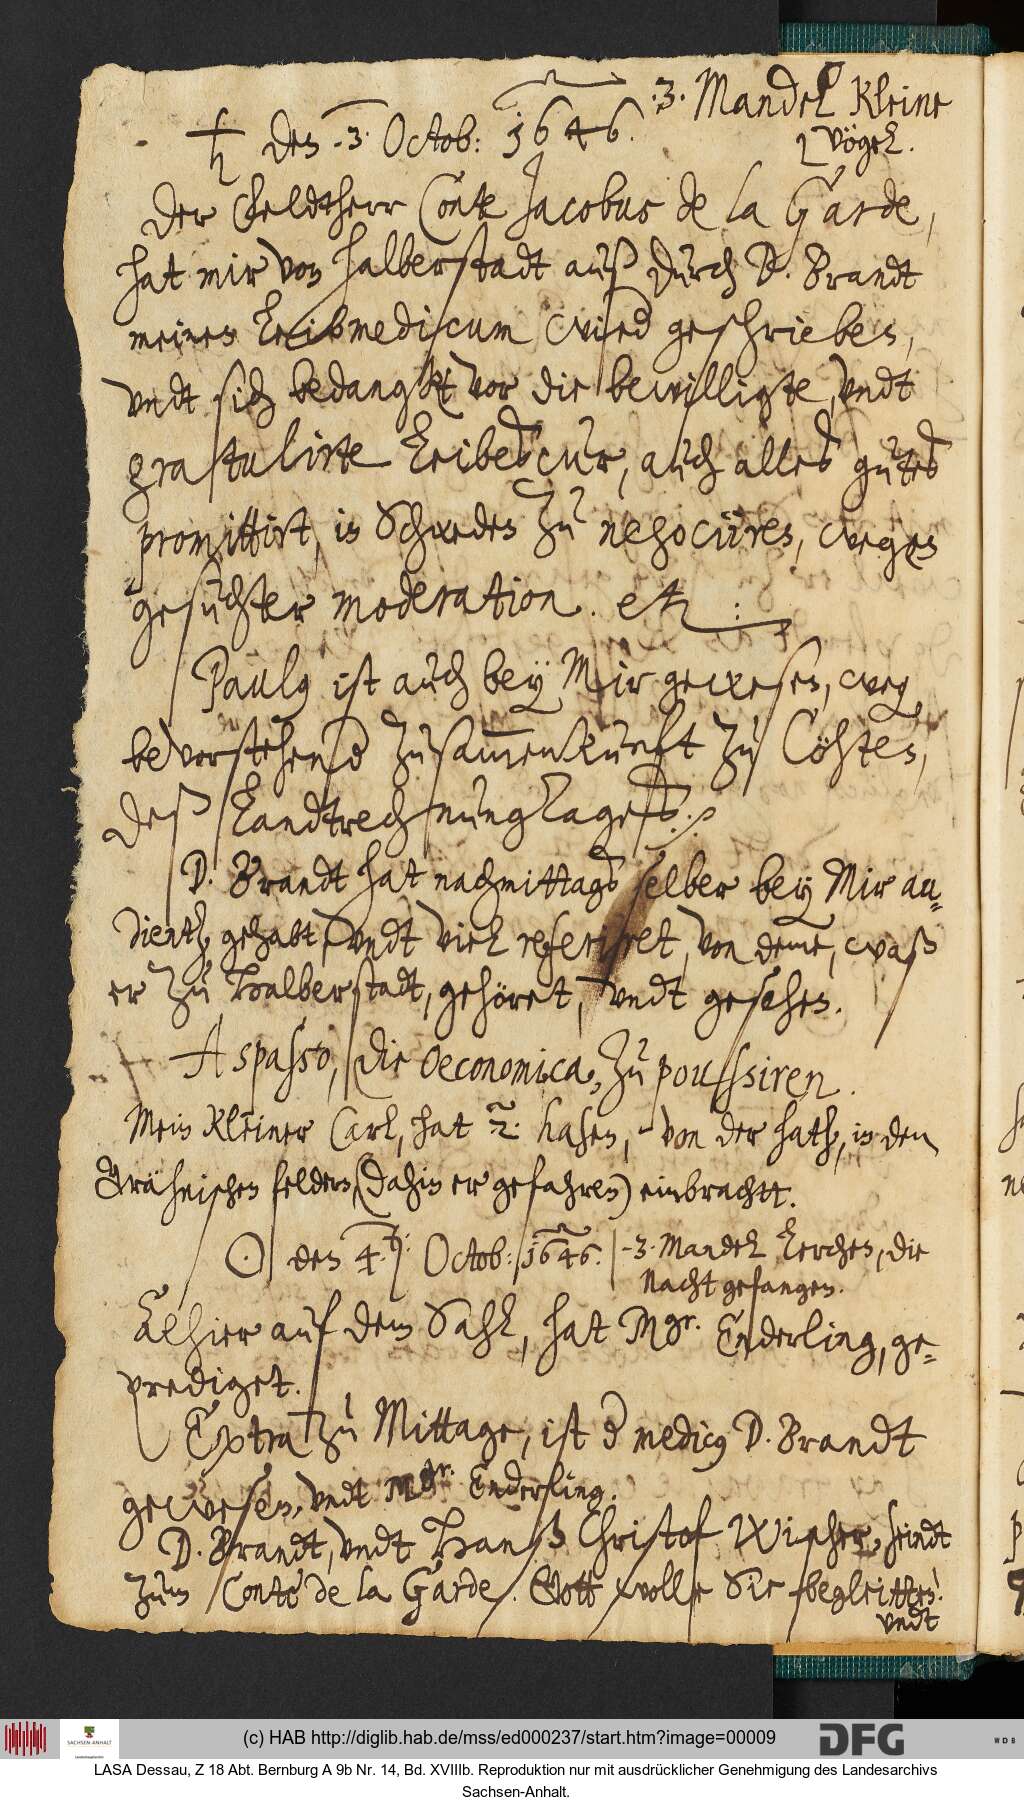 ♄ den .3. Octob: 1646. .3. Mandel Kleine
vögel.
Der Feldtherr Conte Jacobus de la Garde,
hat mir von Halberstadt auß durch D. Brandt
meinen Leibmedicum wied geschrieben,
undt sich bedangkt vor die bewilligte, undt
gratulirte Leibescur, auch alles gutes
promittirt, in Schweden zu negociiren, wegen
gesuchter moderation. etc:
Paulg ist auch bey Mir gewesen, weg
bevorstehend Zusam̅enkunft zu Cöhten,
deß Landtrechnungtages.
D. Brandt hat nachmittags selber bey Mir au„
dientz gehabt, undt viel referiret, von deme, waß
er zu Halberstadt, gehöret, undt gesehen.
A spasso, die oeconomica, zu poussiren.
Mein Kleiner Carl, hat 2. hasen, von der hatz, in den
Gröhnischen feldern, (dahin er gefahren) einbrachtt.
☉ den 4. Octob: 1646. | .3. Mandel Lerchen, die
Nacht gefangen.
Alhier auf dem Sahl, hat Mgr. Enderling, ge„
prediget.
Extra zu Mittage, ist d medicg D. Brandt
gewesen, undt Mgr. Enderling.
D. Brandt, undt Hanß Christof Wischer, seindt
zum Conte de la Garde. Gott wolle Sie begleitten!
undt
(c) HAB http://diglib.hab.de/mss/ed000237/start.htm?image=00009
SACHSEN-ANHALT
DFG
WDB
LASA Dessau, Z 18 Abt. Bernburg A 9b Nr. 14, Bd. XVIIIb. Reproduktion nur mit ausdrücklicher Genehmigung des Landesarchivs
Sachsen-Anhalt.